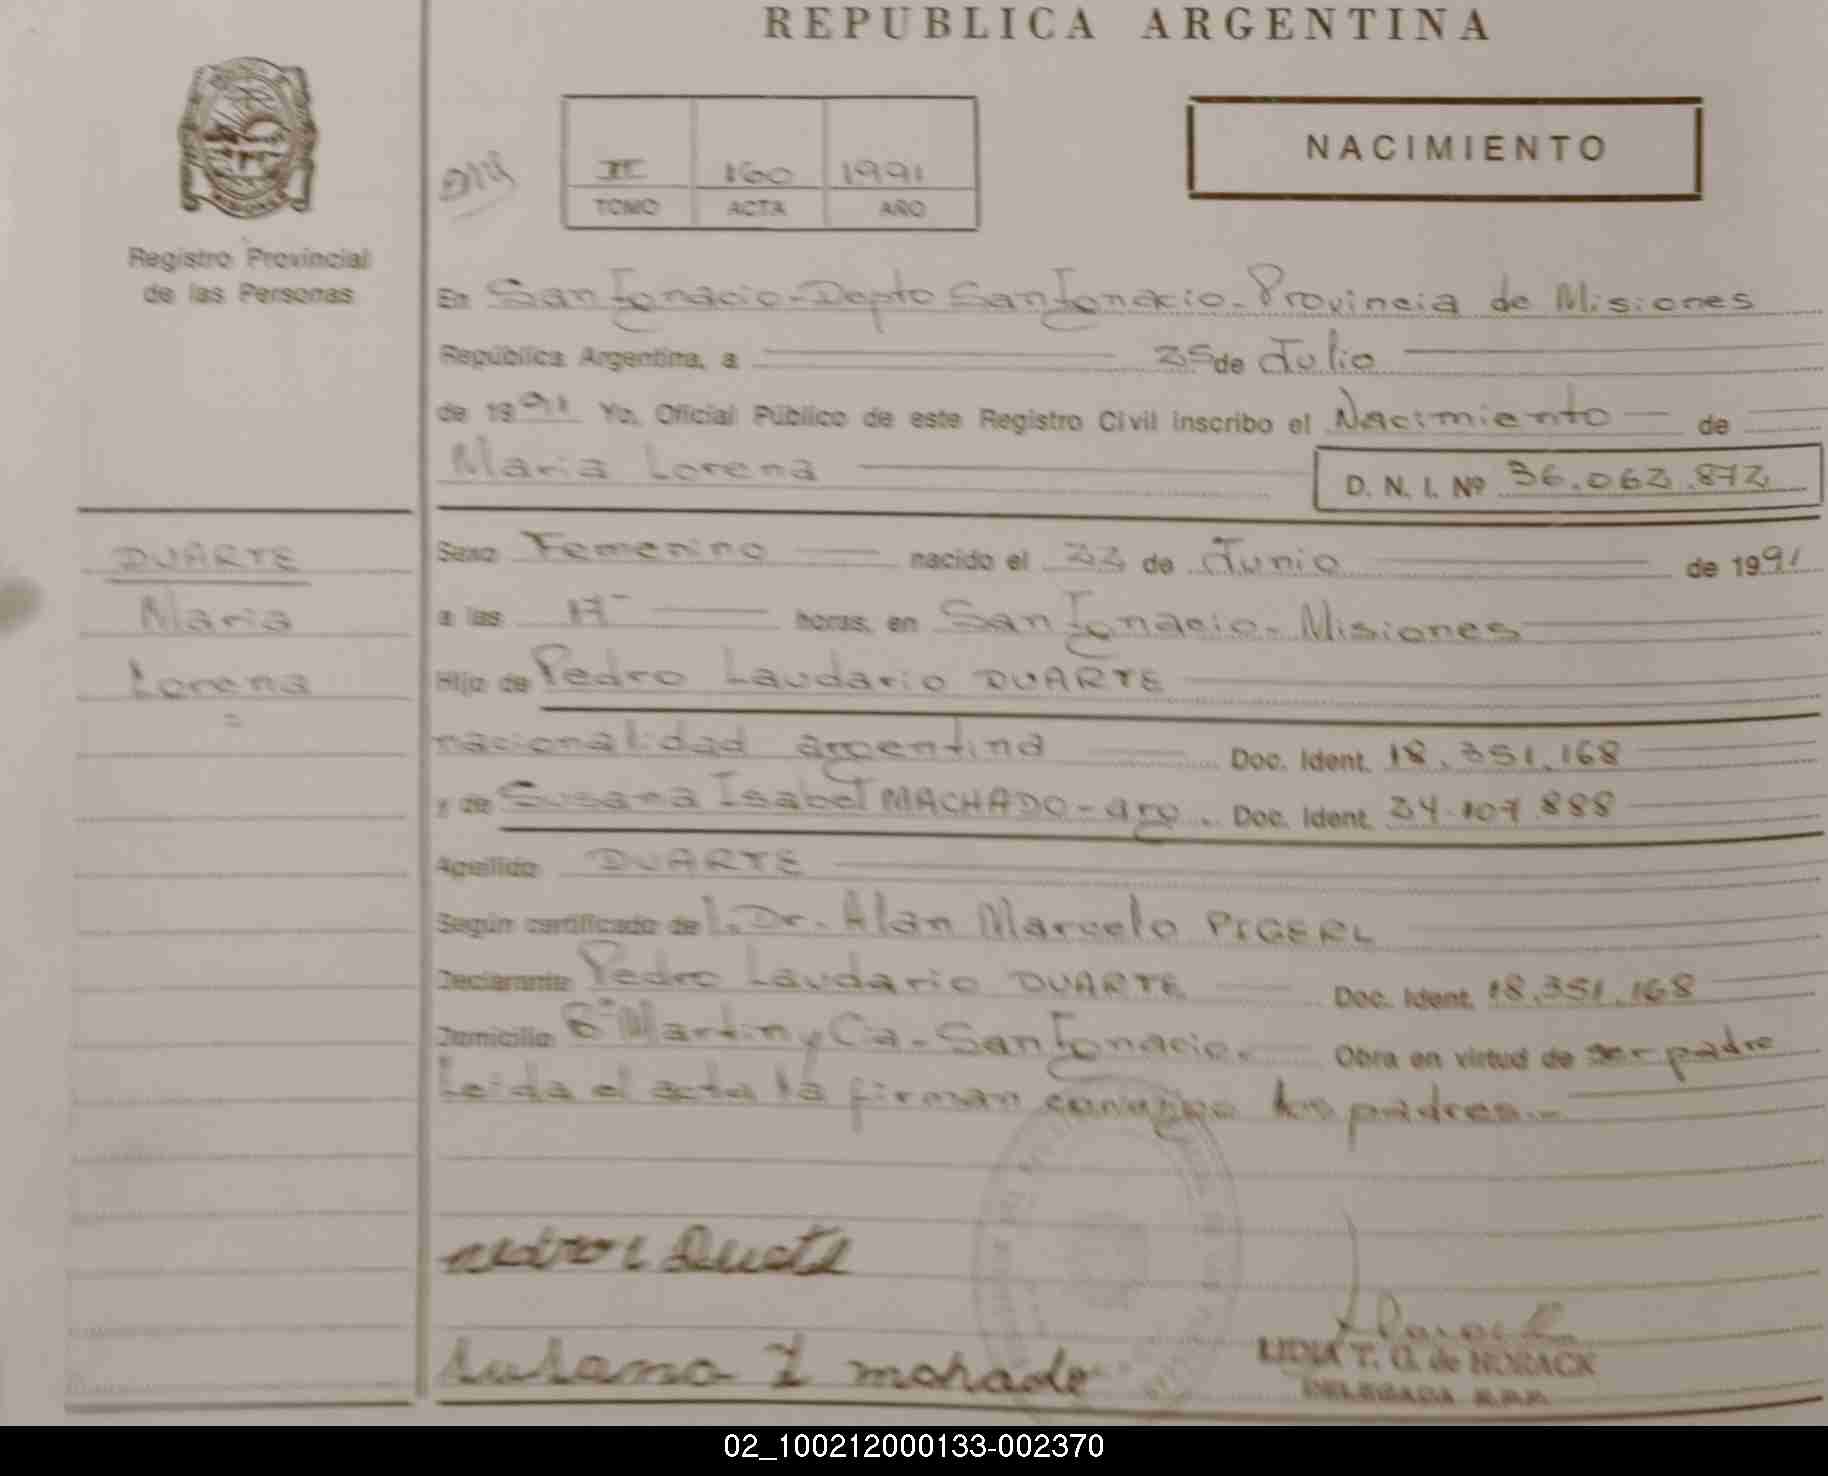 REPUBLICA ARGENTINA
NACIMIENTO
II 160 1991
TOMO ACTA AÑO
Registro Provincial
de las Personas
En San Ignacio - Depto San Ignacio - Provincia de Misiones
República Argentina, a 25 de Julio
de 1991 Yo, Oficial Público de este Registro Civil inscribo el Nacimiento de
Maria Lorena D. N. I. Nº 36.062.872
DUARTE
Maria
Lorena
Sexo Femenino nacido el 22 de Junio de 1991
a las 17 horas, en San Ignacio - Misiones
Hijo de Pedro Laudario DUARTE
nacionalidad argentina Doc. Ident. 18.351.168
y de Susana Isabel MACHADO - arg. Doc. Ident. 24.107.888
Apellido DUARTE
Según certificado del Dr. Alan Marcelo PIGERL
Declarante Pedro Laudario DUARTE Doc. Ident. 18.351.168
Domicilio Bº Martin y Cia - San Ignacio. Obra en virtud de ser padre
Leida el acta la firman conmigo los padres.-
Susana I
LIDIA T. G. de HORACK
DELEGADA R.P.P.
02_100212000133-002370